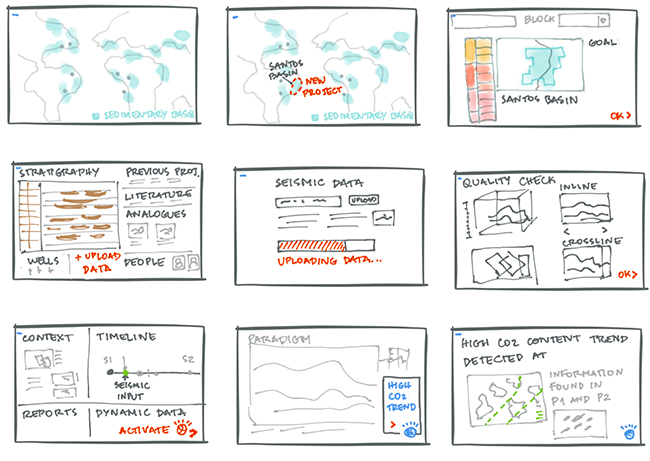 SEDIMENTARY BASIN
SANTOS
BASIN
NEW
PROJECT
SEDIMENTARY BASIN
BLOCK
GOAL:
SANTOS BASIN
OK>
STRATIGRAPHY
PREVIOUS PROJ.
LITERATURE
ANALOGUES
WELLS
+ UPLOAD
DATA
PEOPLE
SEISMIC DATA
UPLOAD
UPLOADING DATA...
QUALITY CHECK
INLINE
< >
CROSSLINE
OK>
CONTEXT
TIMELINE
S1
S2
SEISMIC
INPUT
REPORTS
DYNAMIC DATA
ACTIVATE
PARADIGM
HIGH
CO2
TREND
>
HIGH CO2 CONTENT TREND
DETECTED AT
INFORMATION
FOUND IN
P1 AND P2